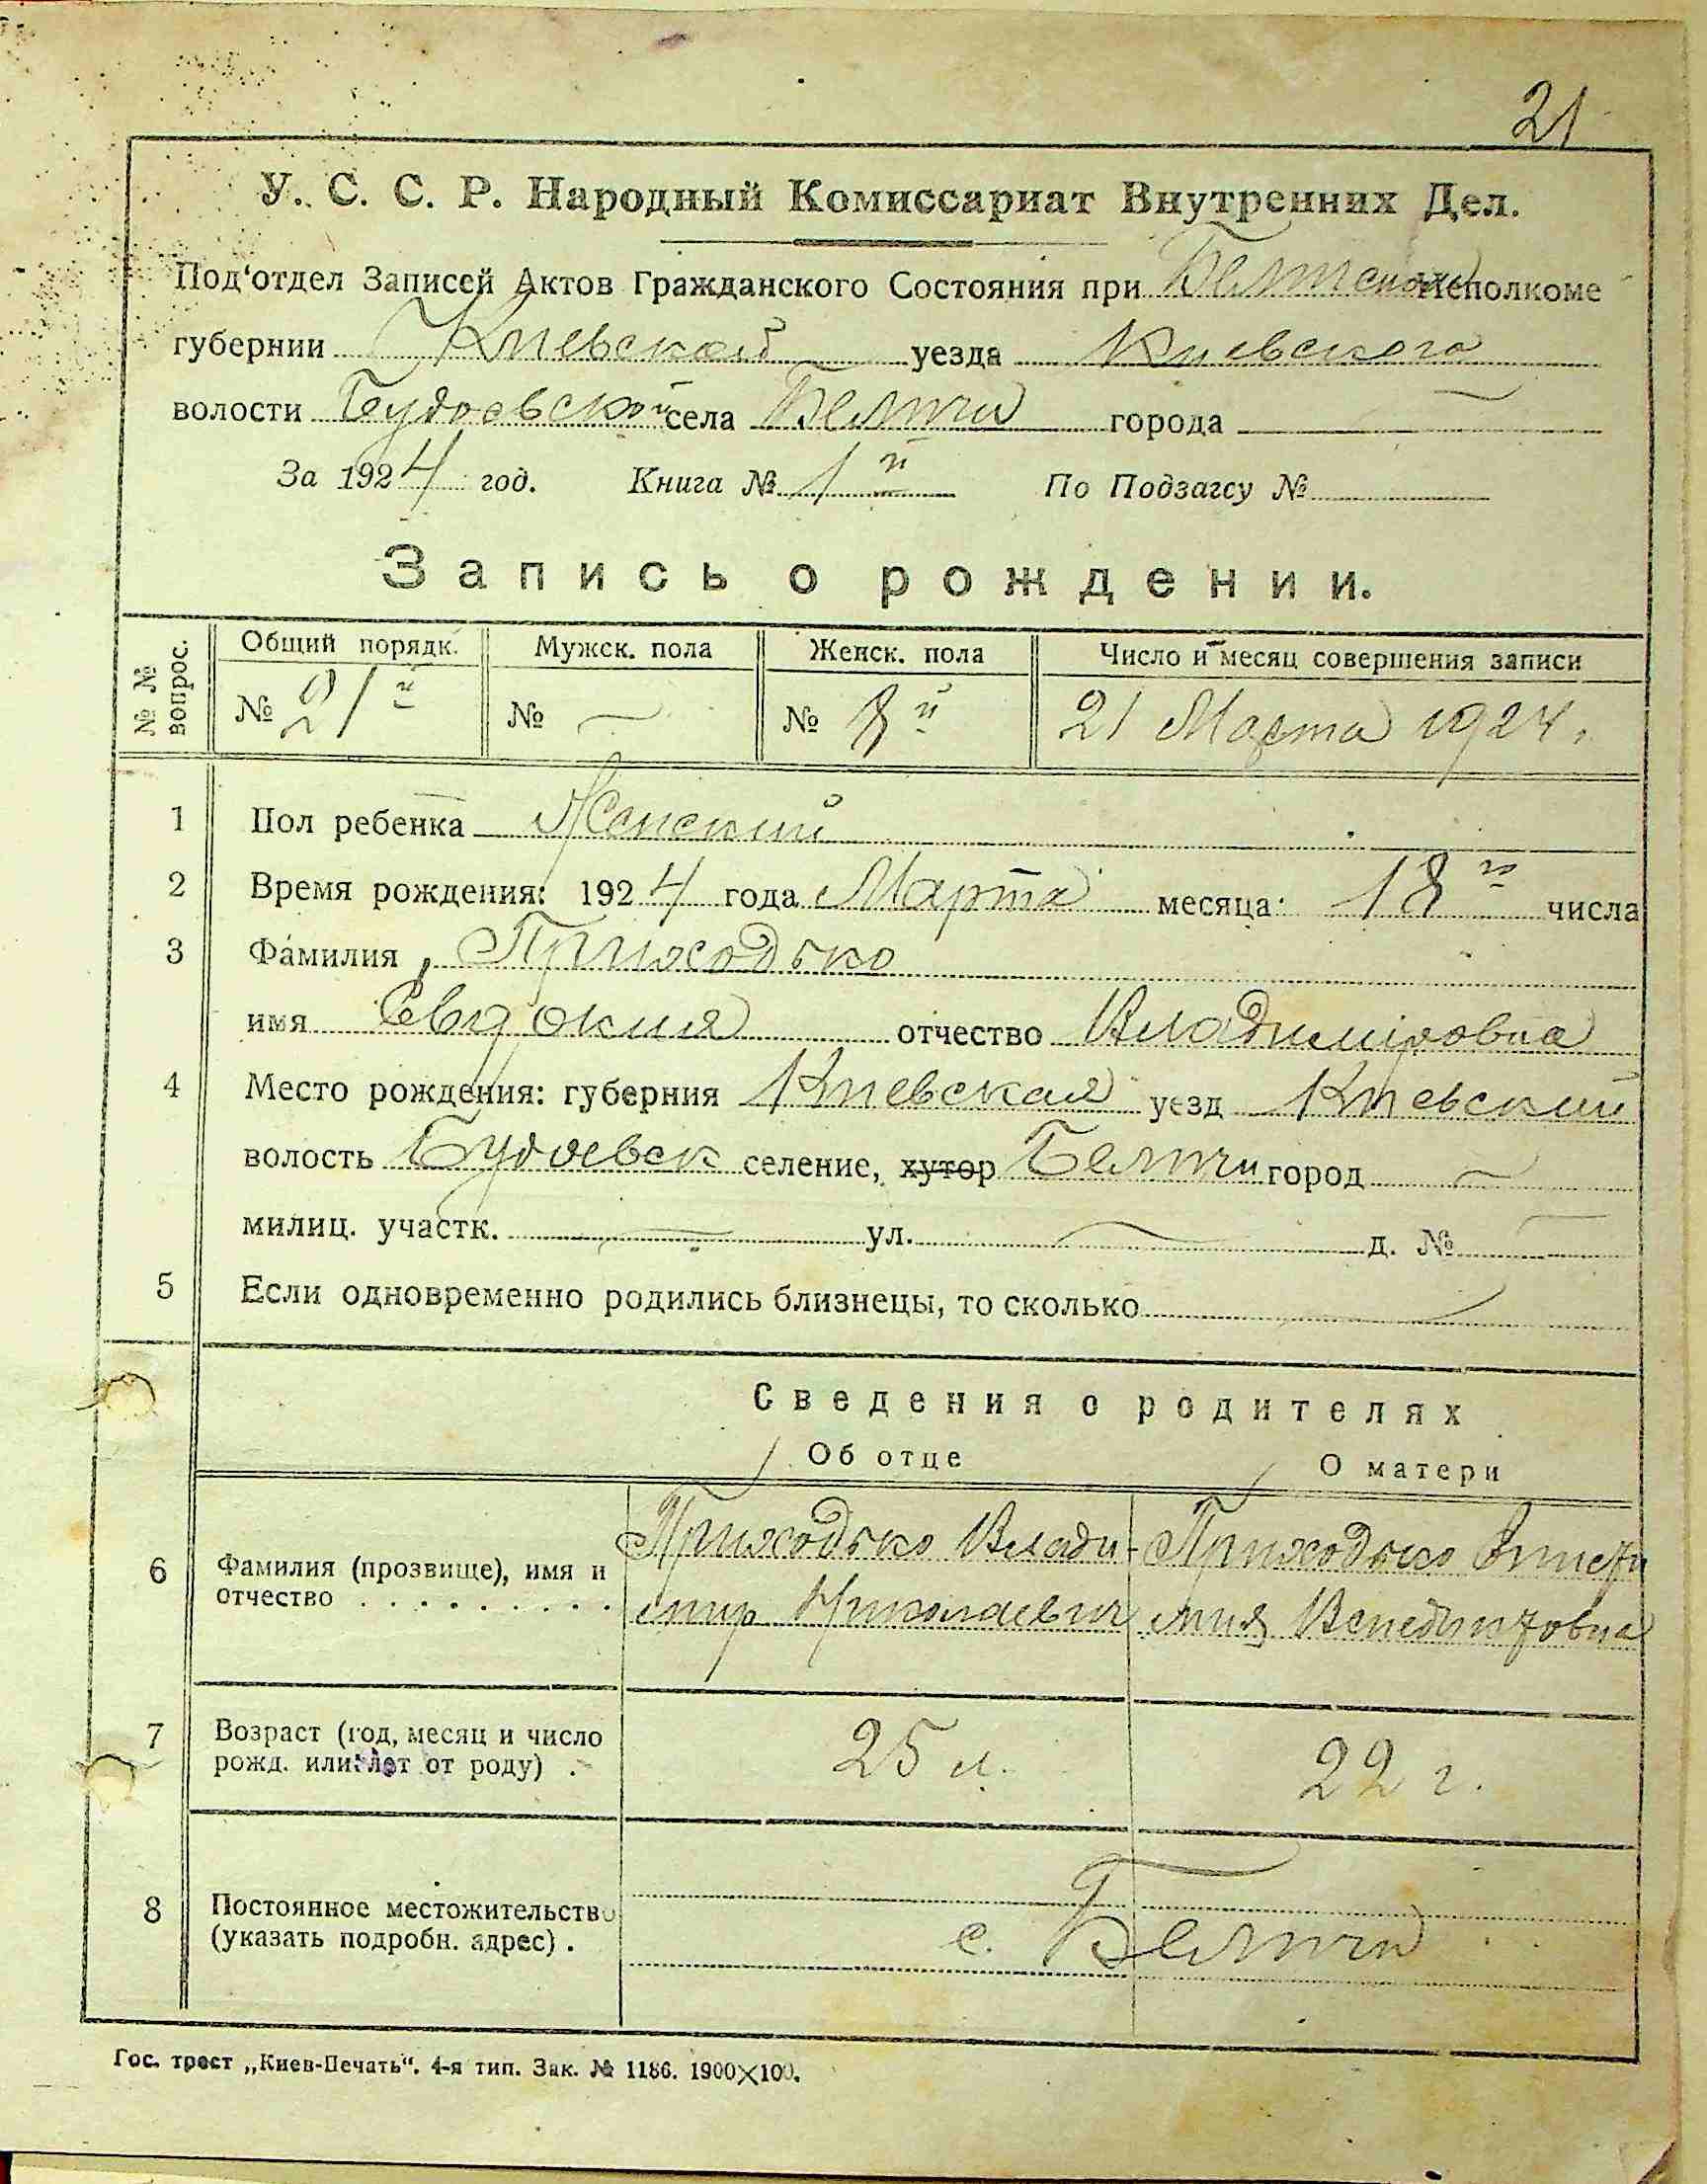 21
У. С. С. Р. Народный Комиссариат Внутренних Дел.
Под'отдел Записей Актов Гражданского Состояния при Исполкоме
губернии Киевской уезда Киевского
волости Будаевской села Беличи города
За 1924 год. Книга № 1й По Подзагсу №
Запись о рождении.
№ № вопрос. Общий порядк. Мужск. пола Женск. пола Число и месяц совершения записи
№ 21й № — № 8й 21 Марта 1924.
1 Пол ребенка Женский
2 Время рождения: 1924 года Марта месяца 18го числа
3 Фамилия Приходько
имя Евдокия отчество Владимировна
4 Место рождения: губерния Киевская уезд Киевский
волость Будаевск селение, хутор Беличи город —
милиц. участк. — ул. — д. № —
5 Если одновременно родились близнецы, то сколько —
Сведения о родителях
Об отце О матери
6 Фамилия (прозвище), имя и Приходько Влади- Приходько
отчество . . . . . . . . . мир Николаевич Венедиктовна
7 Возраст (год, месяц и число
рожд. или лет от роду) . 25 л. 22 г.
8 Постоянное местожительство
(указать подробн. адрес) . с. Беличи
Гос. трест „Киев-Печать“. 4-я тип. Зак. № 1186. 1900×100.